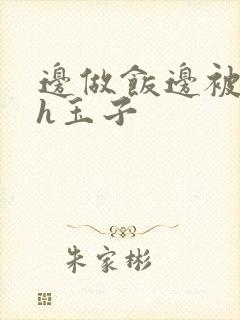 邊做飯邊被
h玉子
朱家彬